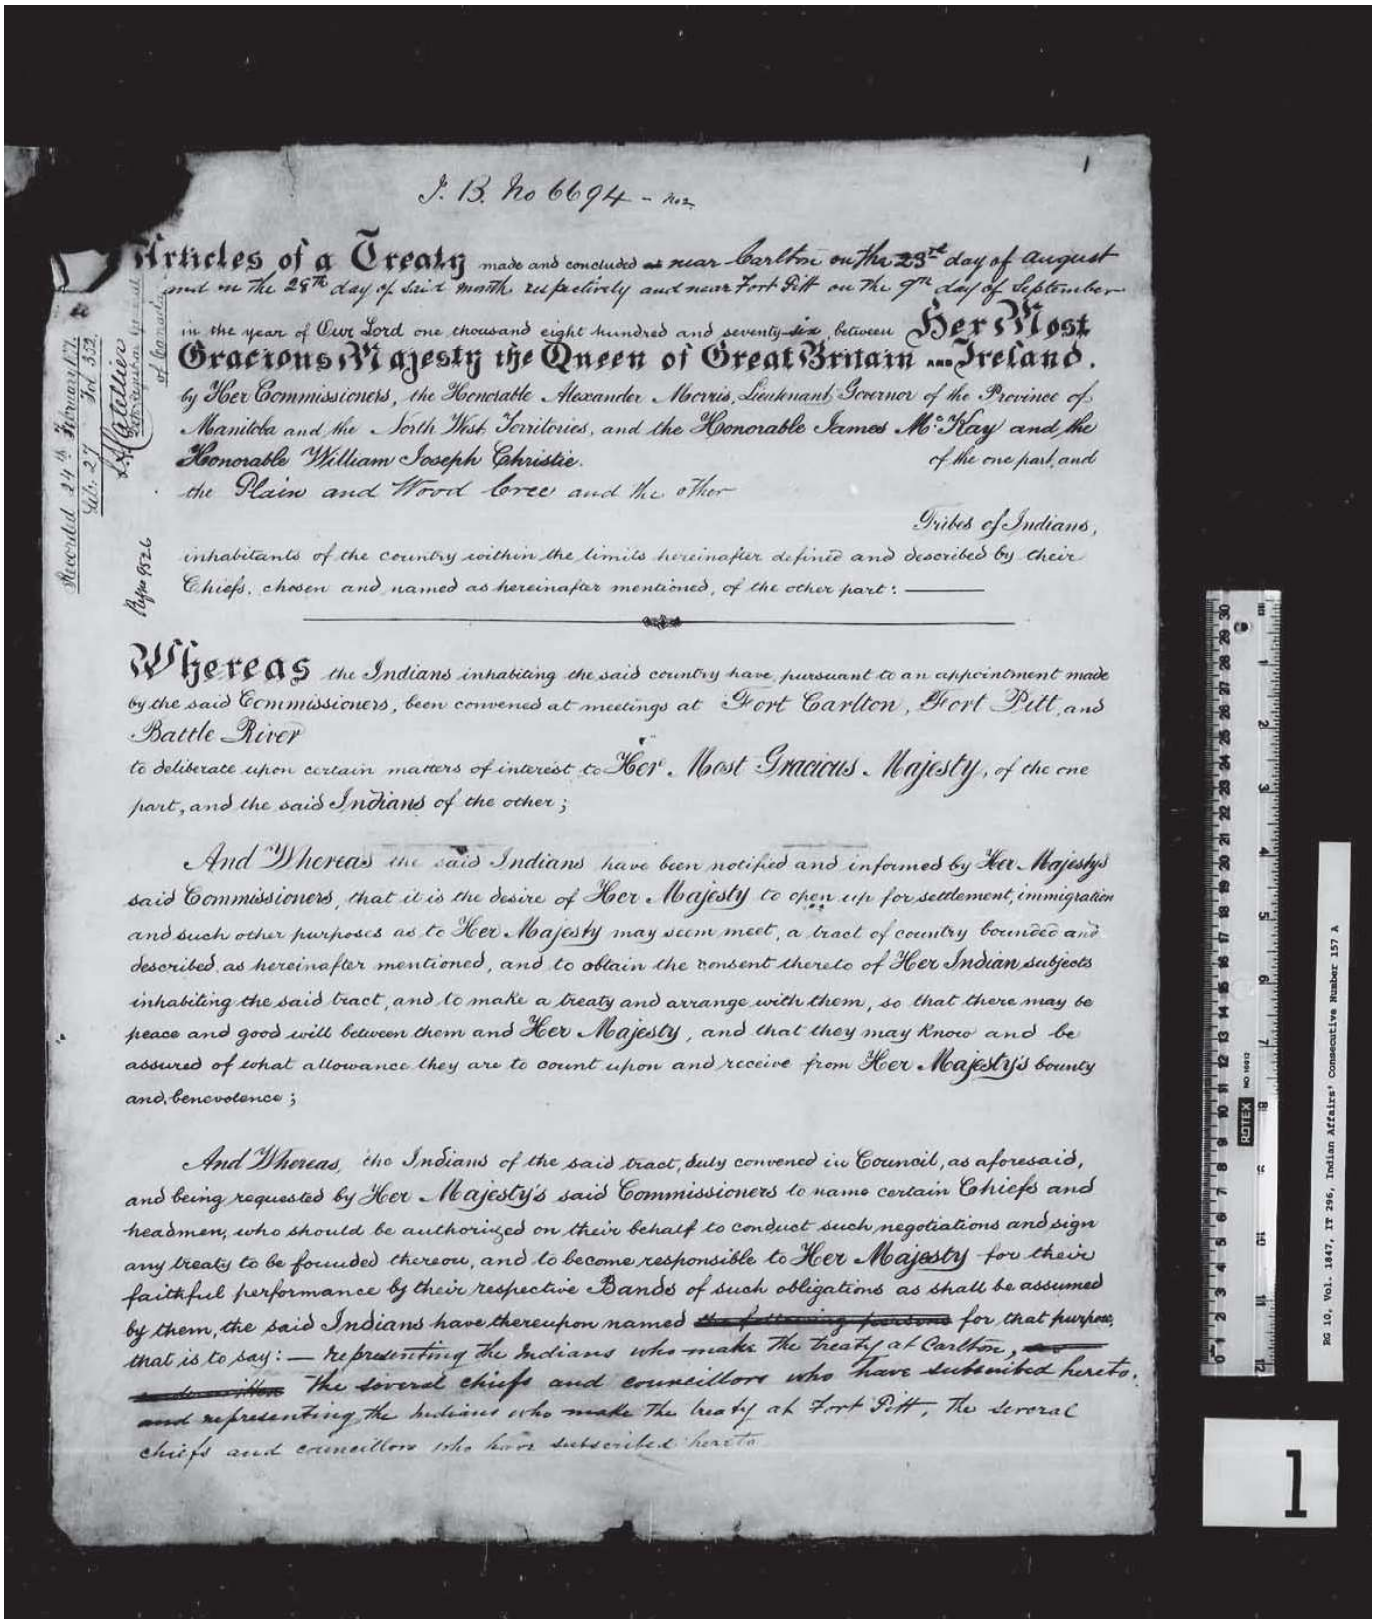 1
I. B. No 6694 - No 2
Articles of a Treaty made and concluded at near Carlton on the 23rd day of August
and on the 28th day of said month respectively and near Fort Pitt on the 9th day of September
in the year of Our Lord one thousand eight hundred and seventy-six, between Her Most
Gracious Majesty the Queen of Great Britain and Ireland.
by Her Commissioners, the Honorable Alexander Morris, Lieutenant Governor of the Province of
Manitoba and the North West Territories, and the Honorable James McKay and the
Honorable William Joseph Christie. of the one part, and
the Plain and Wood Cree and the other
Tribes of Indians,
inhabitants of the country within the limits hereinafter defined and described by their
Chiefs, chosen and named as hereinafter mentioned, of the other part: —
Recorded 24th February 1877
Lib. 27 Fol 353.
L A Catellier
Dep Registrar General
of Canada
Paper 9526
Whereas the Indians inhabiting the said country have, pursuant to an appointment made
by the said Commissioners, been convened at meetings at Fort Carlton, Fort Pitt, and
Battle River
to deliberate upon certain matters of interest to Her Most Gracious Majesty, of the one
part, and the said Indians of the other;
And Whereas the said Indians have been notified and informed by Her Majesty's
said Commissioners, that it is the desire of Her Majesty to open up for settlement, immigration
and such other purposes as to Her Majesty may seem meet, a tract of country bounded and
described as hereinafter mentioned, and to obtain the consent thereto of Her Indian subjects
inhabiting the said tract, and to make a treaty and arrange with them, so that there may be
peace and good will between them and Her Majesty, and that they may know and be
assured of what allowance they are to count upon and receive from Her Majesty's bounty
and benevolence;
And Whereas, the Indians of the said tract, duly convened in Council, as aforesaid,
and being requested by Her Majesty's said Commissioners to name certain Chiefs and
headmen, who should be authorized on their behalf to conduct such negotiations and sign
any treaty to be founded thereon, and to become responsible to Her Majesty for their
faithful performance by their respective Bands of such obligations as shall be assumed
by them, the said Indians have thereupon named the following persons for that purpose,
that is to say: — representing the Indians who make the treaty at Carlton,
the several chiefs and councillors who have subscribed hereto.
and representing the Indians who make the treaty at Fort Pitt, the several
chiefs and councillors who have subscribed hereto
ROTEX NO 16612
RG 10, Vol. 1847, IT 296, Indian Affairs' Consecutive Number 157 A
1